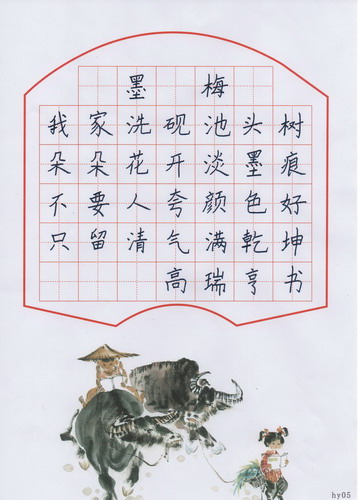 墨梅
我家洗砚池头树
朵朵花开淡墨痕
不要人夸颜色好
只留清气满乾坤
高瑞亨书
hy05